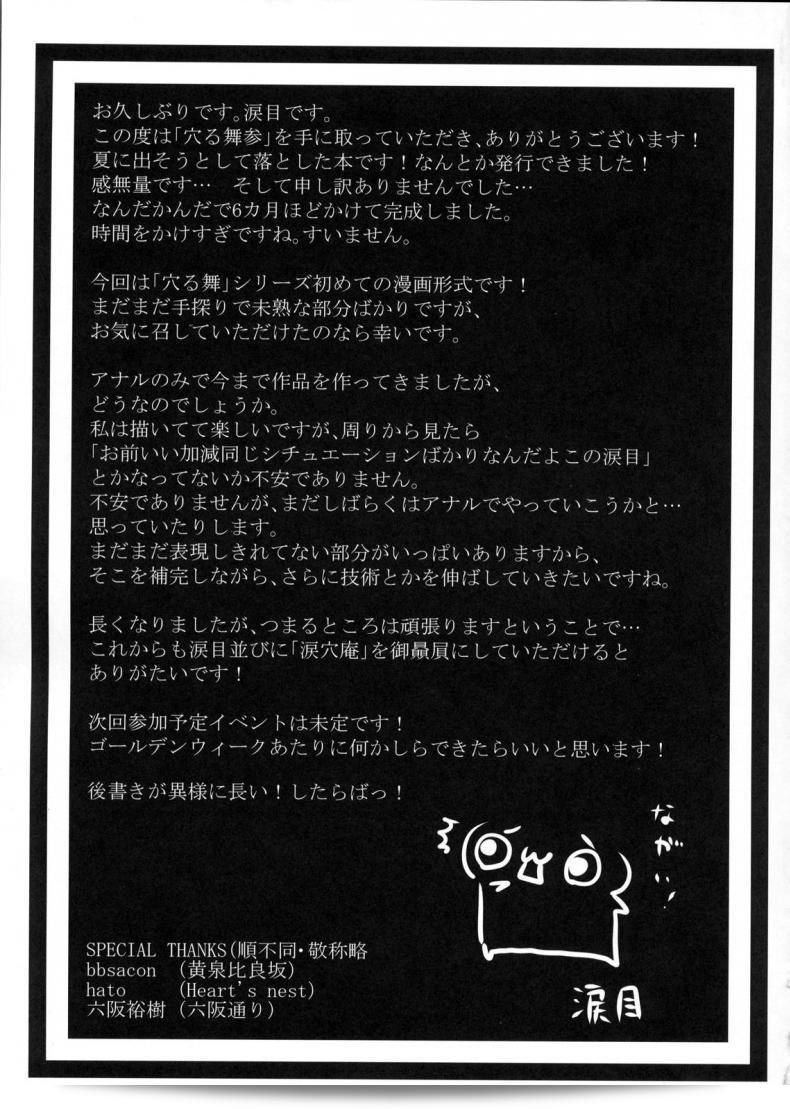 お久しぶりです。涙目です。
この度は「穴る舞参」を手に取っていただき、ありがとうございます！
夏に出そうとして落とした本です！なんとか発行できました！
感無量です…　そして申し訳ありませんでした…
なんだかんだで6カ月ほどかけて完成しました。
時間をかけすぎですね。すいません。

今回は「穴る舞」シリーズ初めての漫画形式です！
まだまだ手探りで未熟な部分ばかりですが、
お気に召していただけたのなら幸いです。

アナルのみで今まで作品を作ってきましたが、
どうなのでしょうか。
私は描いてて楽しいですが、周りから見たら
「お前いい加減同じシチュエーションばかりなんだよこの涙目」
とかなってないか不安でありません。
不安でありませんが、まだしばらくはアナルでやっていこうかと…
思っていたりします。
まだまだ表現しきれてない部分がいっぱいありますから、
そこを補完しながら、さらに技術とかを伸ばしていきたいですね。

長くなりましたが、つまるところは頑張りますということで…
これからも涙目並びに「涙穴庵」を御贔屓にしていただけると
ありがたいです！

次回参加予定イベントは未定です！
ゴールデンウィークあたりに何かしらできたらいいと思います！

後書きが異様に長い！したらばっ！
ながい！
涙目
SPECIAL THANKS(順不同・敬称略
bbsacon　(黄泉比良坂)
hato　　(Heart's nest)
六阪裕樹 (六阪通り)